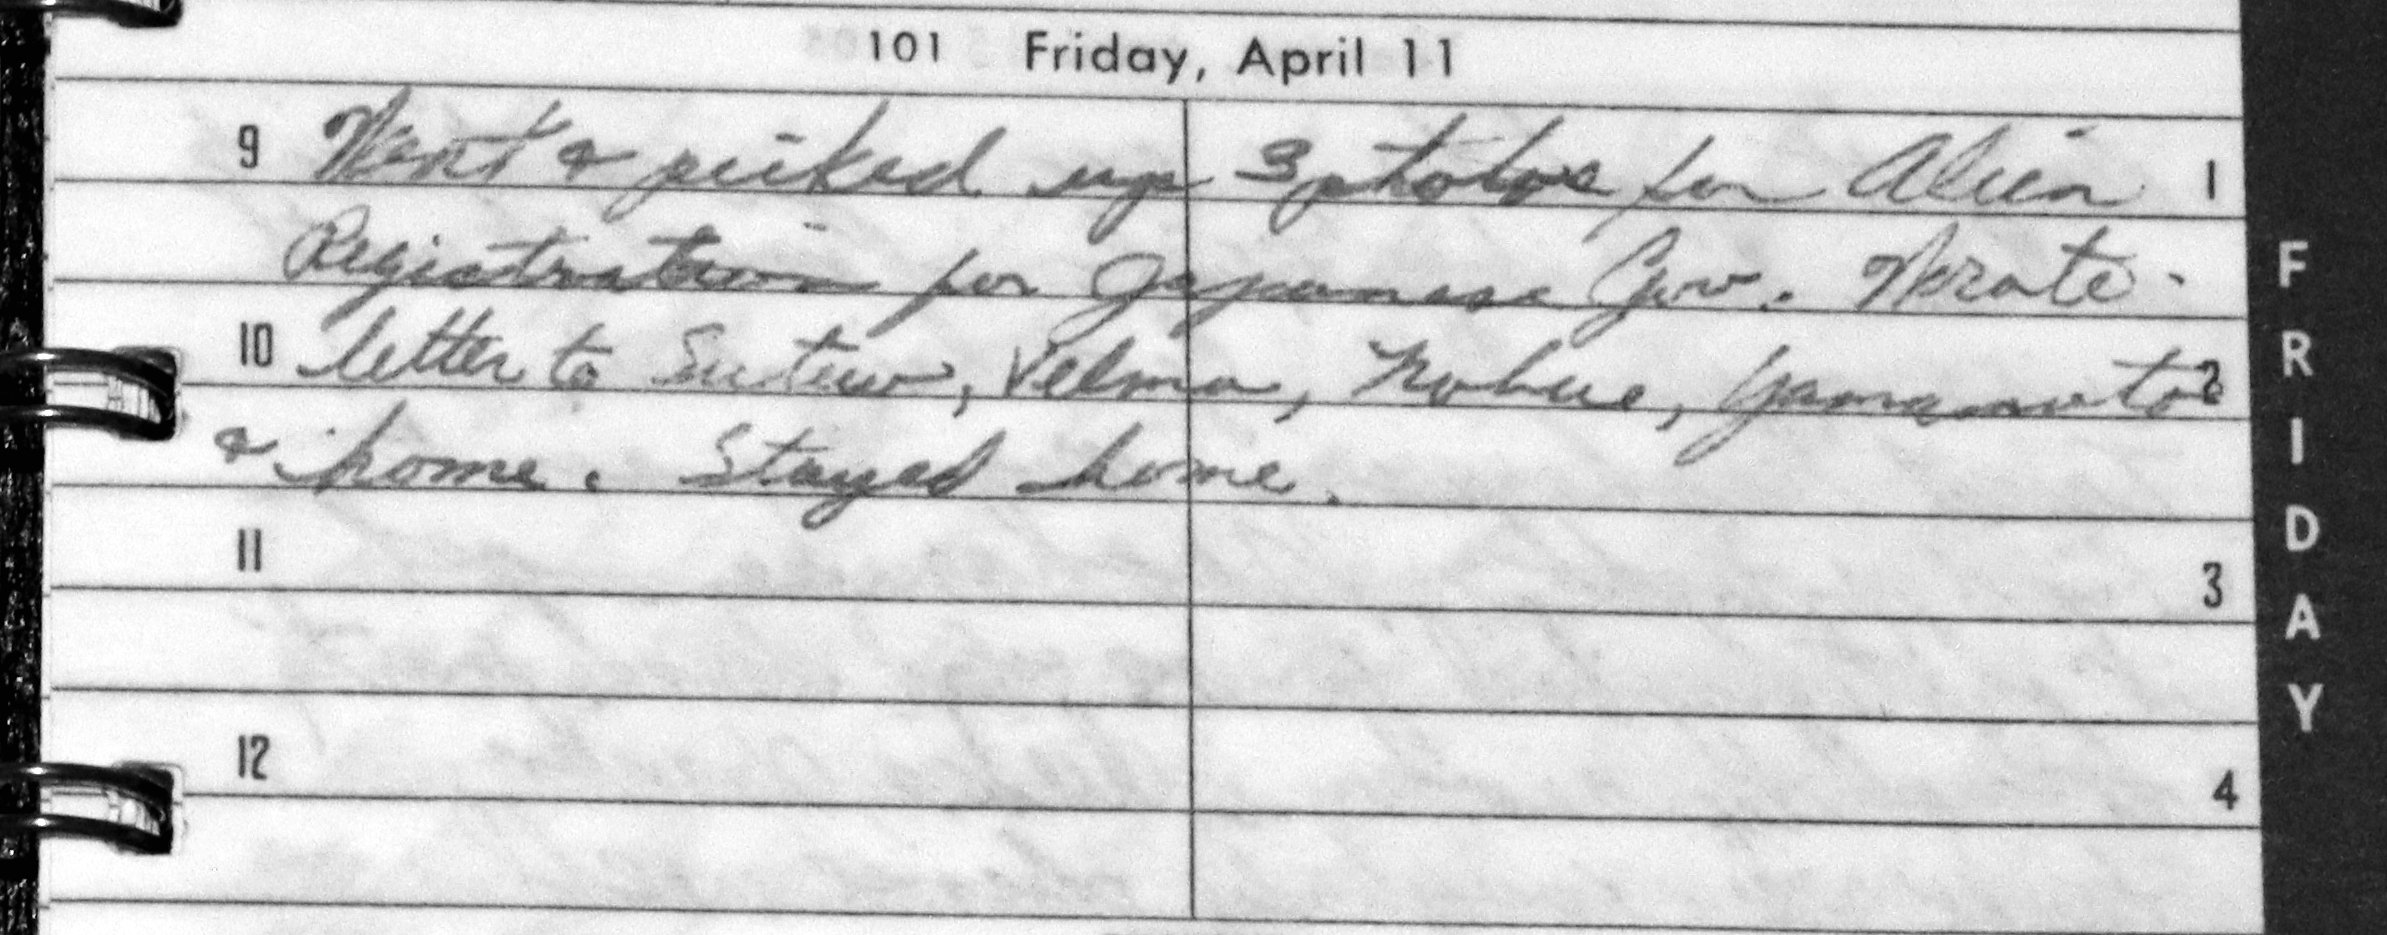 101 Friday, April 11
9 Went & picked up 3 photos for Alien 1
Registration for Japanese Gov. Wrote
10 letter to Velma, Nobue, Yamamoto 2
& home. Stayed home.
11 3
12 4
FRIDAY